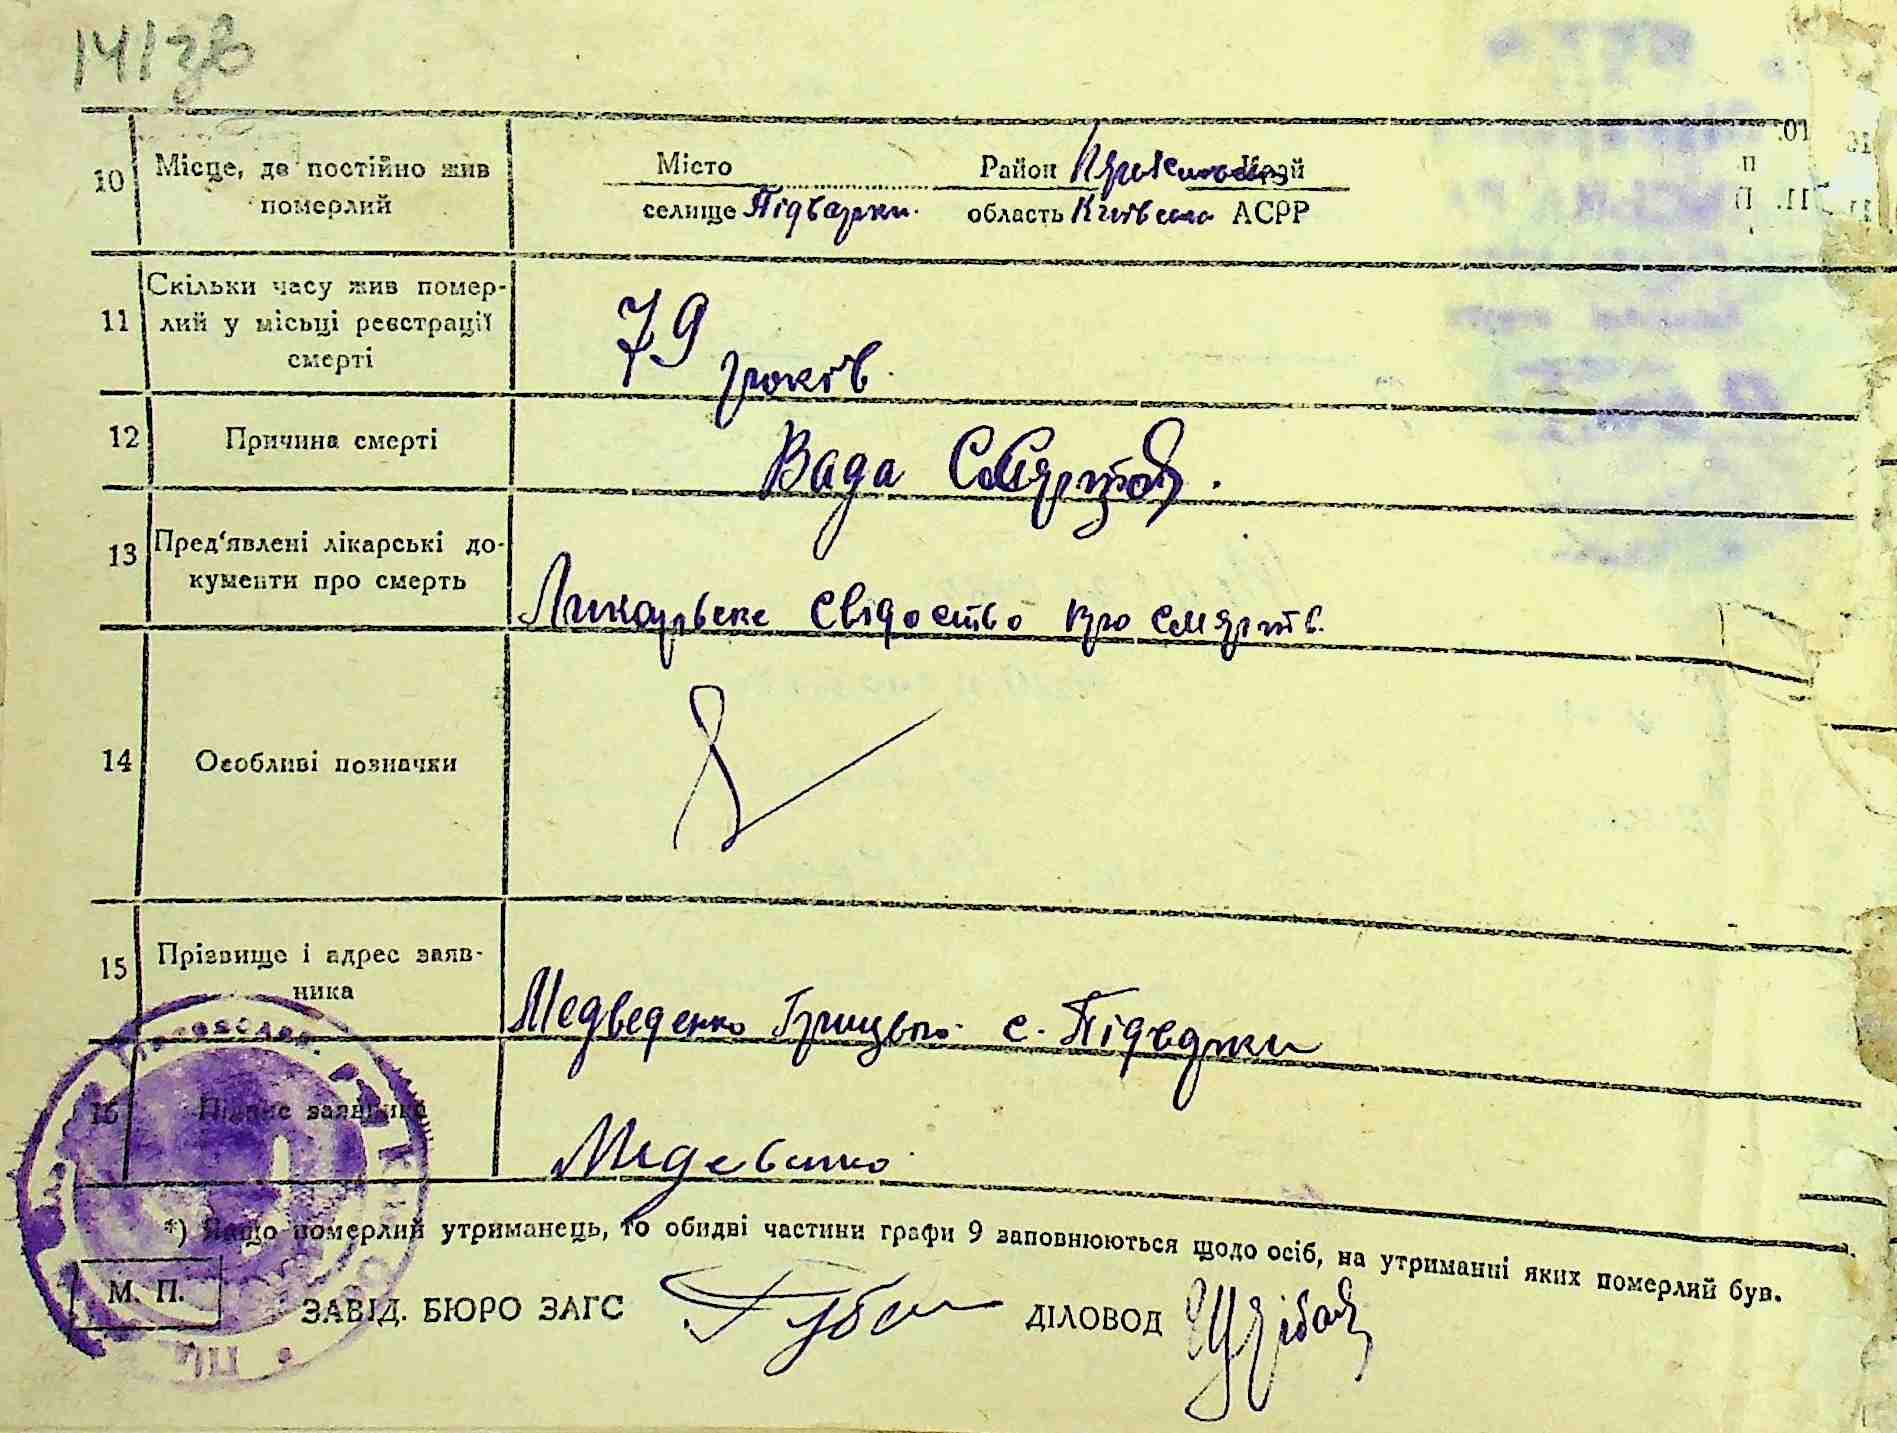 141 зв
10 Місце, де постійно жив померлий
Місто Район Край
селище Підварки. область Київська АСРР
11 Скільки часу жив помер-
лий у місьці реєстрації
смерті
79 років.
12 Причина смерті
Вада
13 Пред'явлені лікарські до-
кументи про смерть
Ликарьске свідоство про смярть.
14 Особливі позначки
15 Прізвище і адрес заяв-
ника
Медведенко Грицько. с. Підварки
16 Підпис заявника
*) Якщо померлий утриманець, то обидві частини графи 9 заповнюються щодо осіб, на утриманні яких померлий був.
М. П.
ЗАВІД. БЮРО ЗАГС ДІЛОВОД